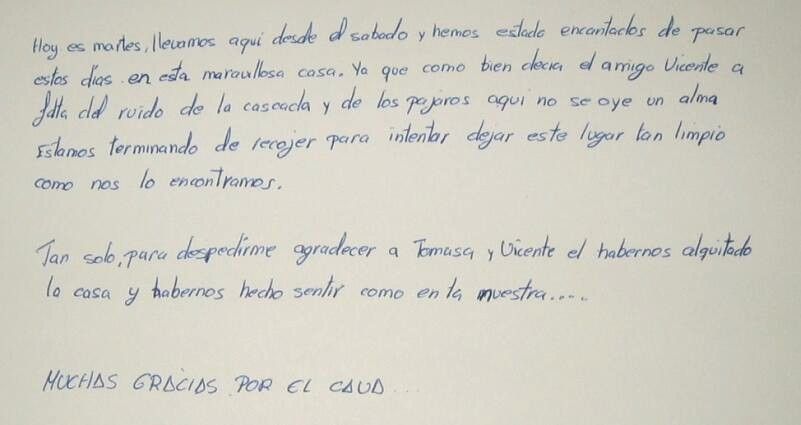 Hoy es martes, llevamos aquí desde el sabado y hemos estado encantados de pasar
estos días en esta maravillosa casa. Ya que como bien decia el amigo Vicente a
falta del ruido de la cascada y de los pajaros aqui no se oye un alma
Estamos terminando de recojer para intentar dejar este lugar tan limpio
como nos lo encontramos.
Tan solo, para despedirme agradecer a Tomasa y Vicente el habernos alquilado
la casa y habernos hecho sentir como en la nuestra.....
MUCHAS GRACIAS POR EL CAVA...